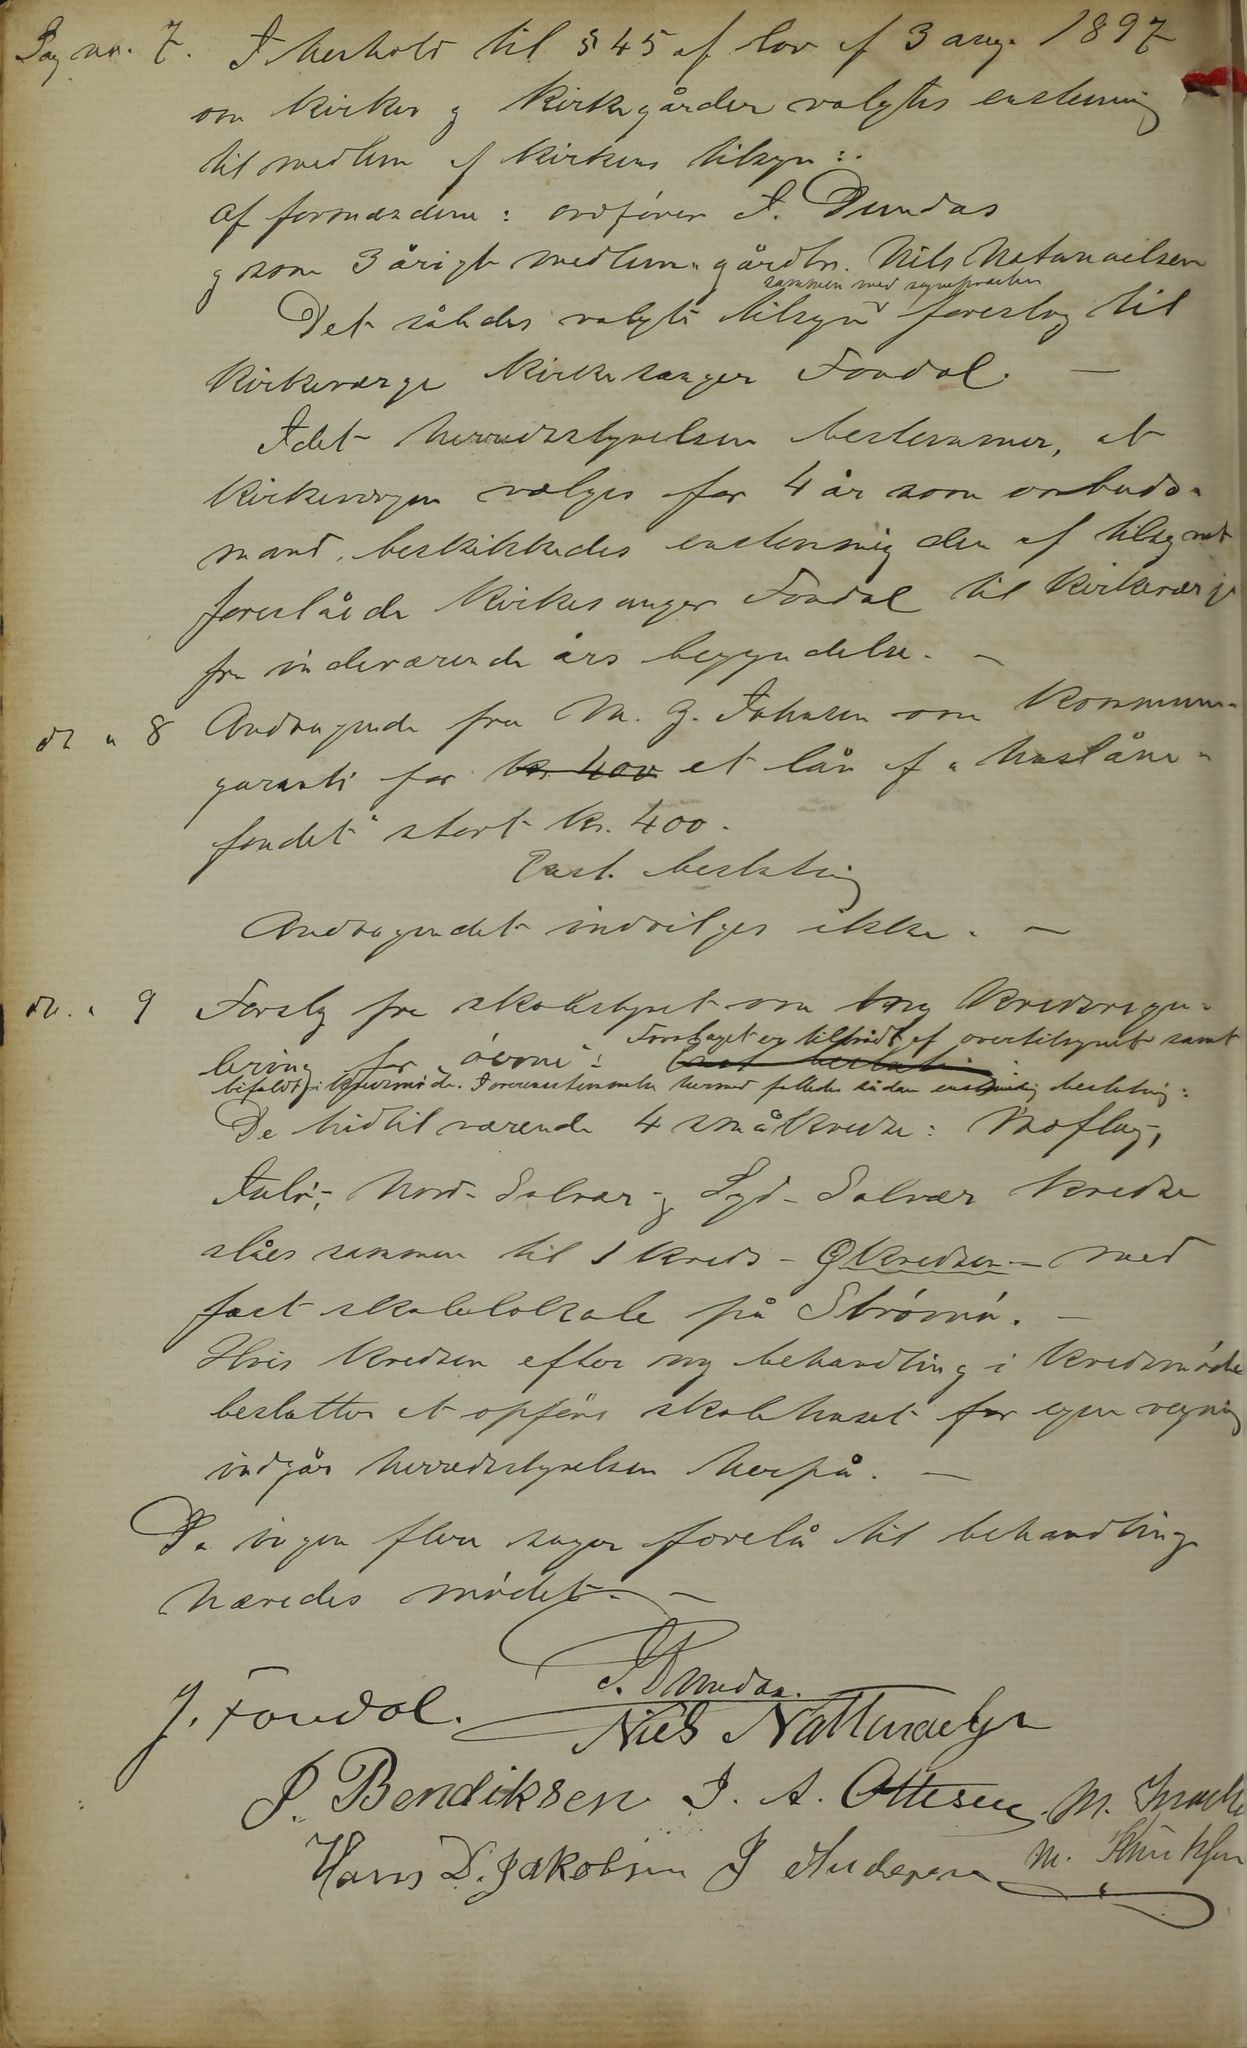 Sag no. 7. I henhold til § 45 af lov af 3 aug. 1897
om kirker og kirkegårder valgtes enstemmig
til medlem af kirkens tilsyn:.
af formændene: ordfører I. Dundas
og som 3 årigt medlem: gårdbr. Nils Natanaelsen
sammen med sognepresten
Det således valgte tilsyn foreslog til
kirkeværge kirkesanger Fondal. —
Idet herredsstyrelsen bestemmer, at
kirkevergen vælges for 4 år som ombuds-
mand, beskikkedes enstemmig den af tilsynet
foreslåede kirkesanger Fondal til kirkeværge
fra indeværende års begyndelse. —
do " 8 Andragende fra M. G. Johnsen om kommune-
garanti for kr. 400 et lån af "huslåne-
fondet" stort kr. 400.
Enst. beslutning
Andragendet indvilges ikke. —
do. " 9 Forslag fra skolestyret om ny kredsregu-
lering for øerne": Forslaget er tiltrådt af overtilsynet samt
bifaldt i kredsmøde. I overensstemmelse hermed fattedes sådan enstemmig beslutning:
De hidtil værende 4 småkredse: Moflag,
Indre, Nord-Solvær og Syd-Solvær kredse
slåes sammen til 1 kreds - Økredsen — med
fast skolelokale på Strømø. —
Hvis kredsen efter ny behandling i kredsmøde
beslutter at opføre skolehuset for egen regning
indgår herredsstyrelsen herpå. —
Da ingen flere sager forelå til behandling
hævedes mødet. —
I. Dundas.
J. Fondal. Niels Nattanaelsen
P. Bendiksen J. A. Ottesen. M.
Hans D. Jakobsen J Andersen M.